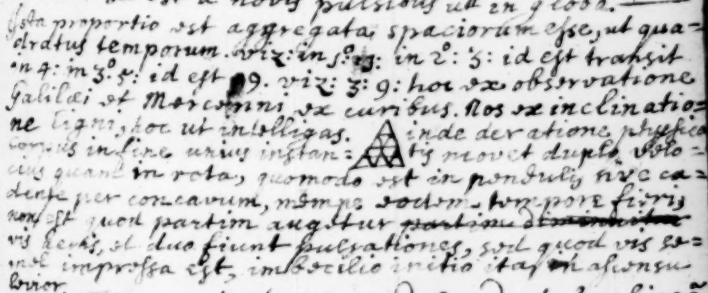 a novis pulsibus ut in globo.
Ista proportio est aggregata spaciorum esse, ut qua=
dratus temporum. viz: in 1º: in 2º: 3: id est transit
4: in 3º. 5: id est 9. viz: 3: 9: hoc ex observatione
Galilæi et Mercenni ex curibus. Nos ex inclinatio=
ne ligni, hoc ut intelligas. inde de ratione physica
corpus in fine unius instan= tis movet duplo velo=
cius quam in rota, quomodo est in pendulis sive ca=
dente per concavum, nempe eodem tempore fieri
non est quod partim augetur partim diminuitur
vis et duo fiunt pulsationes, sed quod vis se=
mel impressa est, imbecilio initio ita in ascensu
levior